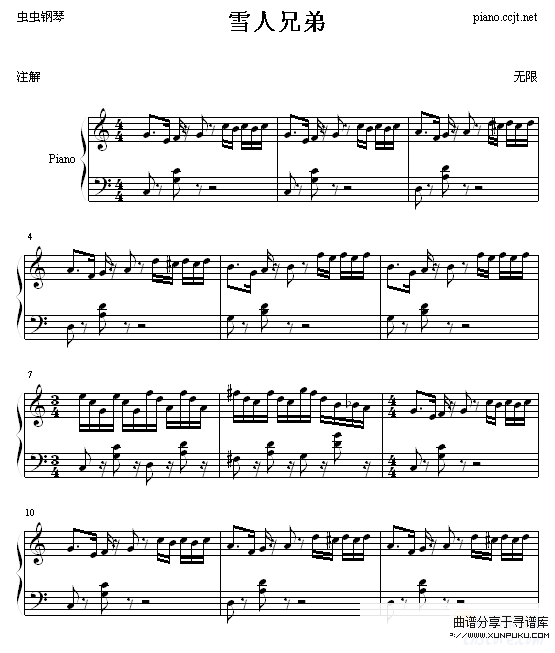 虫虫钢琴
雪人兄弟
piano.ccjt.net
注解
无限
Piano
4
7
10
曲谱分享于寻谱库
WWW.XUNPUKU.COM